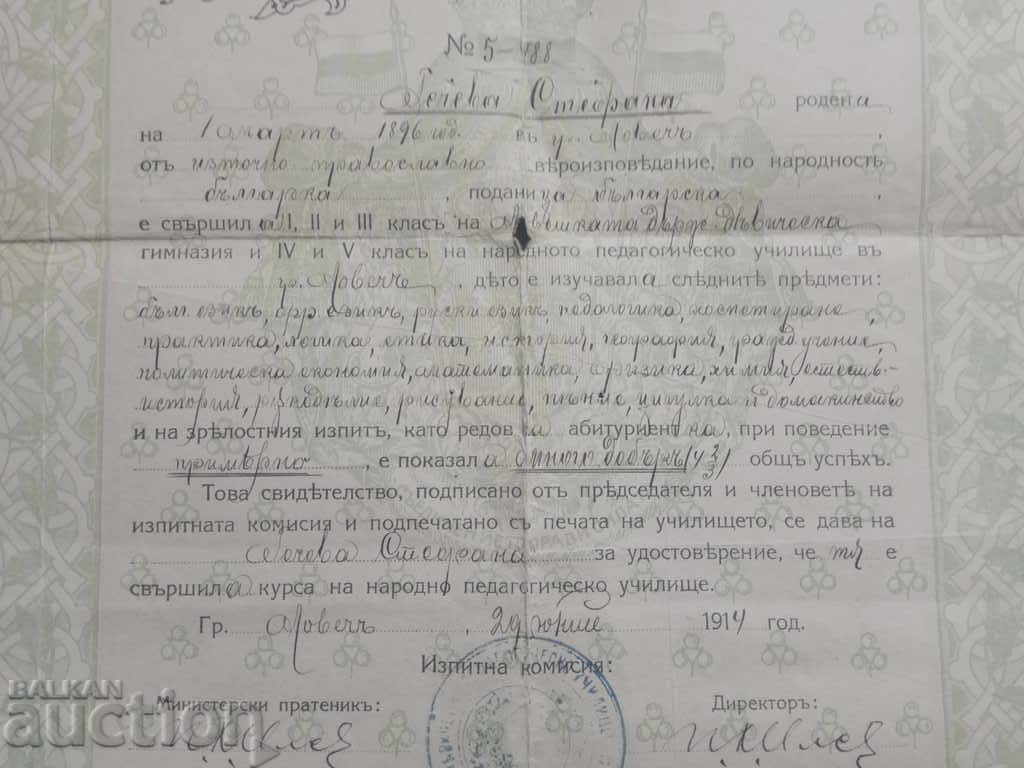 № 5-488
Гечева Стефана родена
на 1 мартъ 1896 год. въ гр. Ловечъ,
отъ източно православно вѣроизповѣдание, по народность
българка, поданица българска,
е свършила I, II и III класъ на Ловешката държ. дѣвическа
гимназия и IV и V класъ на народното педагогическо училище въ
гр. Ловечъ, дѣто е изучавала слѣднитѣ предмети:
бълг. езикъ, фр. езикъ, руски езикъ, педагогика, хоспетиране,
практика, логика, етика, история, география, гражд. учение,
политическа економия, математика, физика, химия, естеств.
история, рѫкодѣлие, рисувание, пѣние, цигулка и домакинство
и на зрѣлостния изпитъ, като редовна абитуриентна, при поведение
примѣрно, е показала много добъръ (4 2/3) общъ успѣхъ.
Това свидѣтелство, подписано отъ прѣдседателя и членоветѣ на
изпитната комисия и подпечатано съ печата на училището, се дава на
Гечева Стефана за удостовѣрение, че тя е
свършила курса на народнo педагогическо училище.
Гр. Ловечъ, 29 юние 1914 год.
Изпитна комисия:
Министерски пратеникъ: Директоръ:
BALKAN
auction